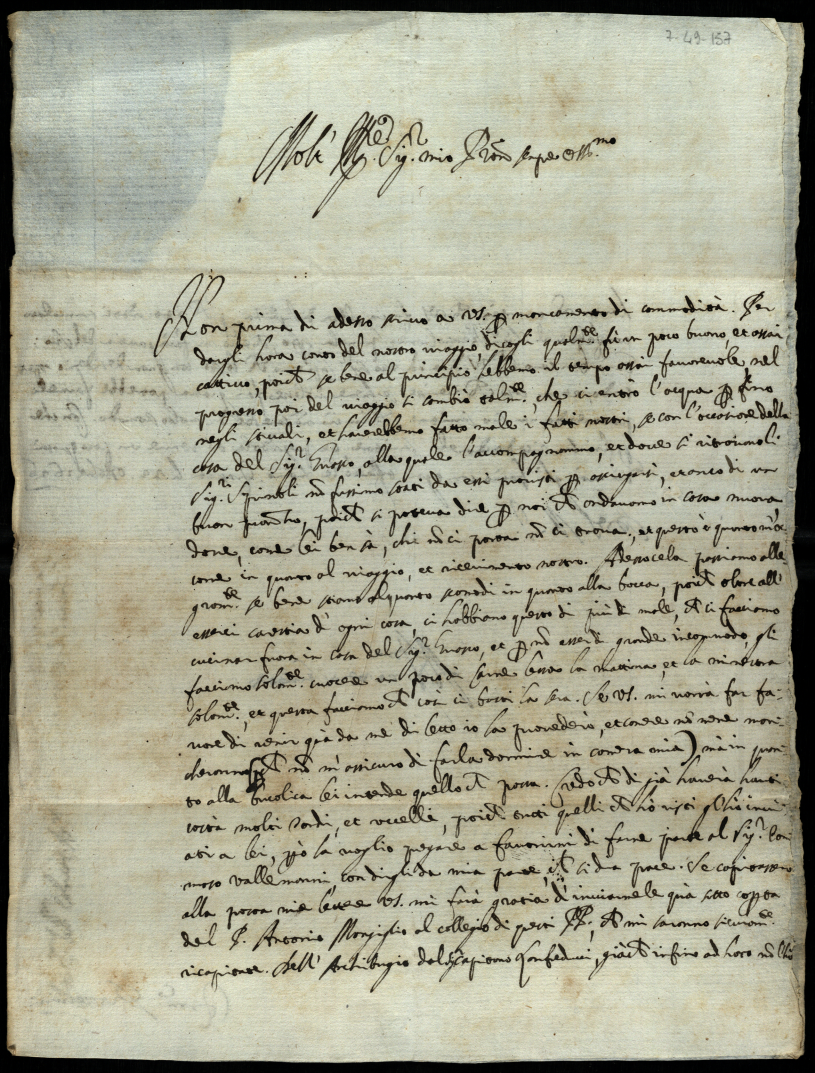 7-49-157
Molt' Sig.r mio
Non prima di adesso scrivo a VS. per mancamento di commodità. Per
dargli hora conto del nostro viaggio, dicogli qualm.te fù un poco buono, et assai
cattivo, poich se bene al principio hebbemo il tempo assai favorevole nel
progresso poi del viaggio si cambiò talm.te, che ci entrò l'acqua per fino
negli stivali, et haverebbemo fatto male i fatti nostri, se con l'occasione della
cosa del Sig.r alla quale l'accompagnammo, et dove si ritrovavoli
Sig.ri Spinoli nō fussimo stati da essi per asciugarsi, et anco di un
buon poich si poteva dire per noi ch andavamo in casa nuova
dove, come lei ben sà, chi nō ci porta nō ci trova, et questo è quanto
in quanto al viaggio, et ricevimento nostro. Adesso cela passiamo alle-
gram.te se bene stiamo alquanto scomodi in quanto alla bocca, poich oltre all'
esserci carestia d' ogni cosa, ci habbiamo questo di più di male, ch ci facciamo
cucinar fuora in casa del Sig.r et per nō esserli grande incomodo gli
facciamo solam.te cuocere un poco di carne lessa la mattina, et la minestra
solam.te, et questa facciamo ch così ci basti la sera. Se VS. mi vorrà far fa-
vore di venir quà da me di letto io la provederò,
nō m'assicuro di farla dormire in camera mia) mà in quan-
to alla Buccolica lei intende quello ch passa. Credo ch di già haverà havu-
molti tordi, et uccelli, poich tutti quelli ch hò visti gl'hò invi-
ati a lei, però la voglio pregare a favorirmi di farne parte al Sig.r
Vallemanni, con dirgli da mia parte, ch si dia pace. Se capitassero
alla posta mie lettere VS. mi farà gratia d' inviarmele quà sotto
del P. Antonio al collegio di questi PP. ch mi saranno sicuram.te
ricapitate. Dell' Archibugio del Capitano giach infino ad hora nō l'hò